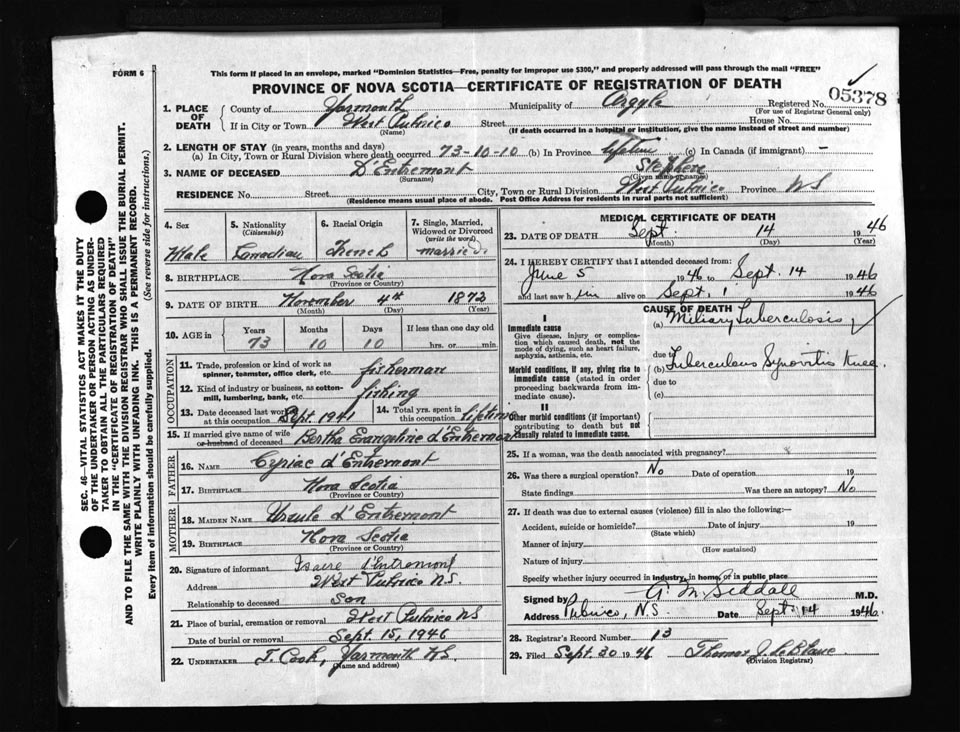 FORM 6
This form if placed in an envelope, marked "Dominion Statistics—Free, penalty for improper use $300," and properly addressed will pass through the mail "FREE"
PROVINCE OF NOVA SCOTIA—CERTIFICATE OF REGISTRATION OF DEATH
05378
1. PLACE OF DEATH { County of Yarmouth Municipality of Argyle Registered No.
(For use of Registrar General only)
If in City or Town West Pubnico Street House No.
(Name) (If death occurred in a hospital or institution, give the name instead of street and number)
2. LENGTH OF STAY (in years, months and days)
(a) In City, Town or Rural Division where death occurred 73-10-10 (b) In Province lifetime (c) In Canada (if immigrant) —
3. NAME OF DECEASED D'Entremont Stephere
(Surname) (Given name or names)
RESIDENCE No. Street City, Town or Rural Division West Pubnico Province NS
(Residence means usual place of abode. Post Office Address for residents in rural parts not sufficient)
4. Sex 5. Nationality (Citizenship) 6. Racial Origin 7. Single, Married, Widowed or Divorced (write the word)
Male Canadian French married
8. BIRTHPLACE Nova Scotia
(Province or Country)
9. DATE OF BIRTH November 4th 1872
(Month) (Day) (Year)
10. AGE in Years Months Days If less than one day old
73 10 10 hrs. or min.
OCCUPATION
11. Trade, profession or kind of work as spinner, teamster, office clerk, etc. fisherman
12. Kind of industry or business, as cotton-mill, lumbering, bank, etc. fishing
13. Date deceased last worked at this occupation Sept. 1941 14. Total yrs. spent in this occupation Lifetime
15. If married give name of wife or husband of deceased Bertha Evangeline d'Entremont
FATHER
16. NAME Cyriac d'Entremont
17. BIRTHPLACE Nova Scotia
(Province or Country)
MOTHER
18. MAIDEN NAME Ursule d'Entremont
19. BIRTHPLACE Nova Scotia
(Province or Country)
20. Signature of informant d'Entremont
Address West Pubnico N.S.
Relationship to deceased son
21. Place of burial, cremation or removal West Pubnico NS
Date of burial or removal Sept. 15, 1946
22. UNDERTAKER T. Cook, Yarmouth NS.
(Name and address)
MEDICAL CERTIFICATE OF DEATH
23. DATE OF DEATH Sept. 14 1946
(Month) (Day) (Year)
24. I HEREBY CERTIFY that I attended deceased from
June 5 1946 to Sept. 14 1946
and last saw him alive on Sept. 1 1946
CAUSE OF DEATH
I
Immediate cause (a) Miliary Tuberculosis
Give disease, injury or complication which caused death, not the mode of dying, such as heart failure, asphyxia, asthenia, etc.
due to
Morbid conditions, if any, giving rise to immediate cause (stated in order proceeding backwards from immediate cause).
(b) Tuberculous Synovitis Knee
due to
(c)
II
Other morbid conditions (if important) contributing to death but not causally related to immediate cause.
25. If a woman, was the death associated with pregnancy?
26. Was there a surgical operation? No Date of operation 19
State findings Was there an autopsy? No
27. If death was due to external causes (violence) fill in also the following:—
Accident, suicide or homicide? Date of injury 19
(State which)
Manner of injury
(How sustained)
Nature of injury
Specify whether injury occurred in industry, in home, or in public place
Signed by G. M. Siddall M.D.
Address Pubnico, N.S. Date Sept. 14 1946.
28. Registrar's Record Number 13
29. Filed Sept. 30 1946 Thomas J. LeBlanc
(Division Registrar)
SEC. 46—VITAL STATISTICS ACT MAKES IT THE DUTY
OF THE UNDERTAKER OR PERSON ACTING AS UNDER-
TAKER TO OBTAIN ALL THE PARTICULARS REQUIRED
IN THE "CERTIFICATE OF REGISTRATION OF DEATH"
AND TO FILE THE SAME WITH THE DIVISION REGISTRAR WHO SHALL ISSUE THE BURIAL PERMIT.
WRITE PLAINLY WITH UNFADING INK. THIS IS A PERMANENT RECORD.
Every item of information should be carefully supplied. (See reverse side for instructions.)